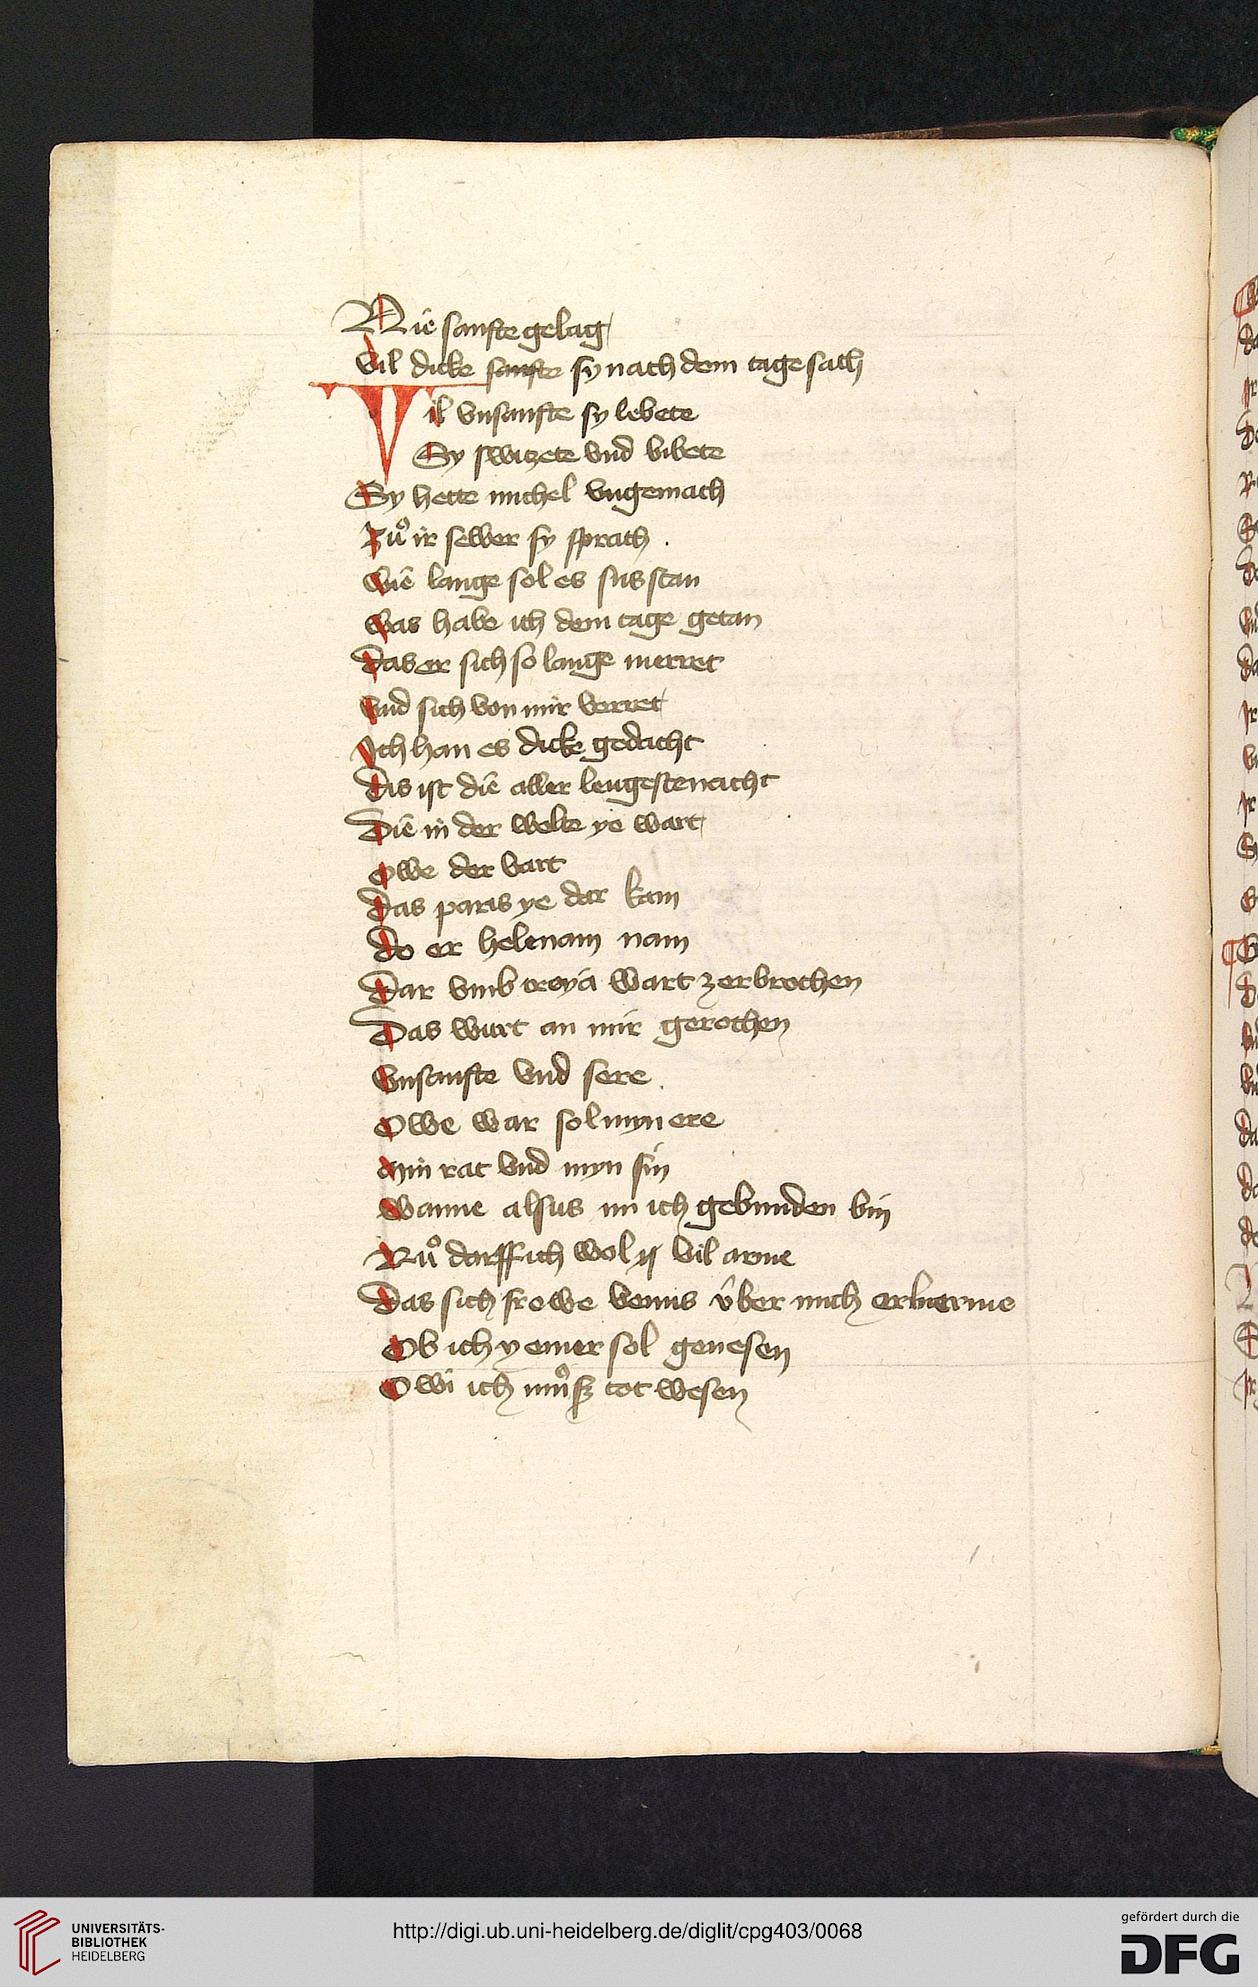 Nie sanfte gelag
Vil dicke sanfte sy nach dem tage sach
Vil vnsanfte sy lebete
Sy switzete vnd bibete
Sy hette michel vngemach
Zuͦ ir sewer sy sprach .
Wie lange sol es sus stan
Was habe ich dem tage getan
Das er sich so lange merret
Vnd sich von mir verret
Ich han es dicke gedacht
Dis ist die aller lengeste nacht
Die in der welte ye wart
Owe der vart
Das paris ye dar kam
Do er helenam nam
Dar vmb troya wart zerbrochen
Das wurt an mir gerochen
Vnsanfte vnd sere .
Owe war sol myn ere
Min rat vnd myn sin
Wanne alsus nu ich gebunden bin
Nuͦ darff ich wol ich vil arme
Das sich frowe venus vber mich erbarme
Ob ich yemer sol genesen
Owi ich muͦß tot wesen
UNIVERSITÄTS-
BIBLIOTHEK
HEIDELBERG
http://digi.ub.uni-heidelberg.de/diglit/cpg403/0068
gefördert durch die
DFG